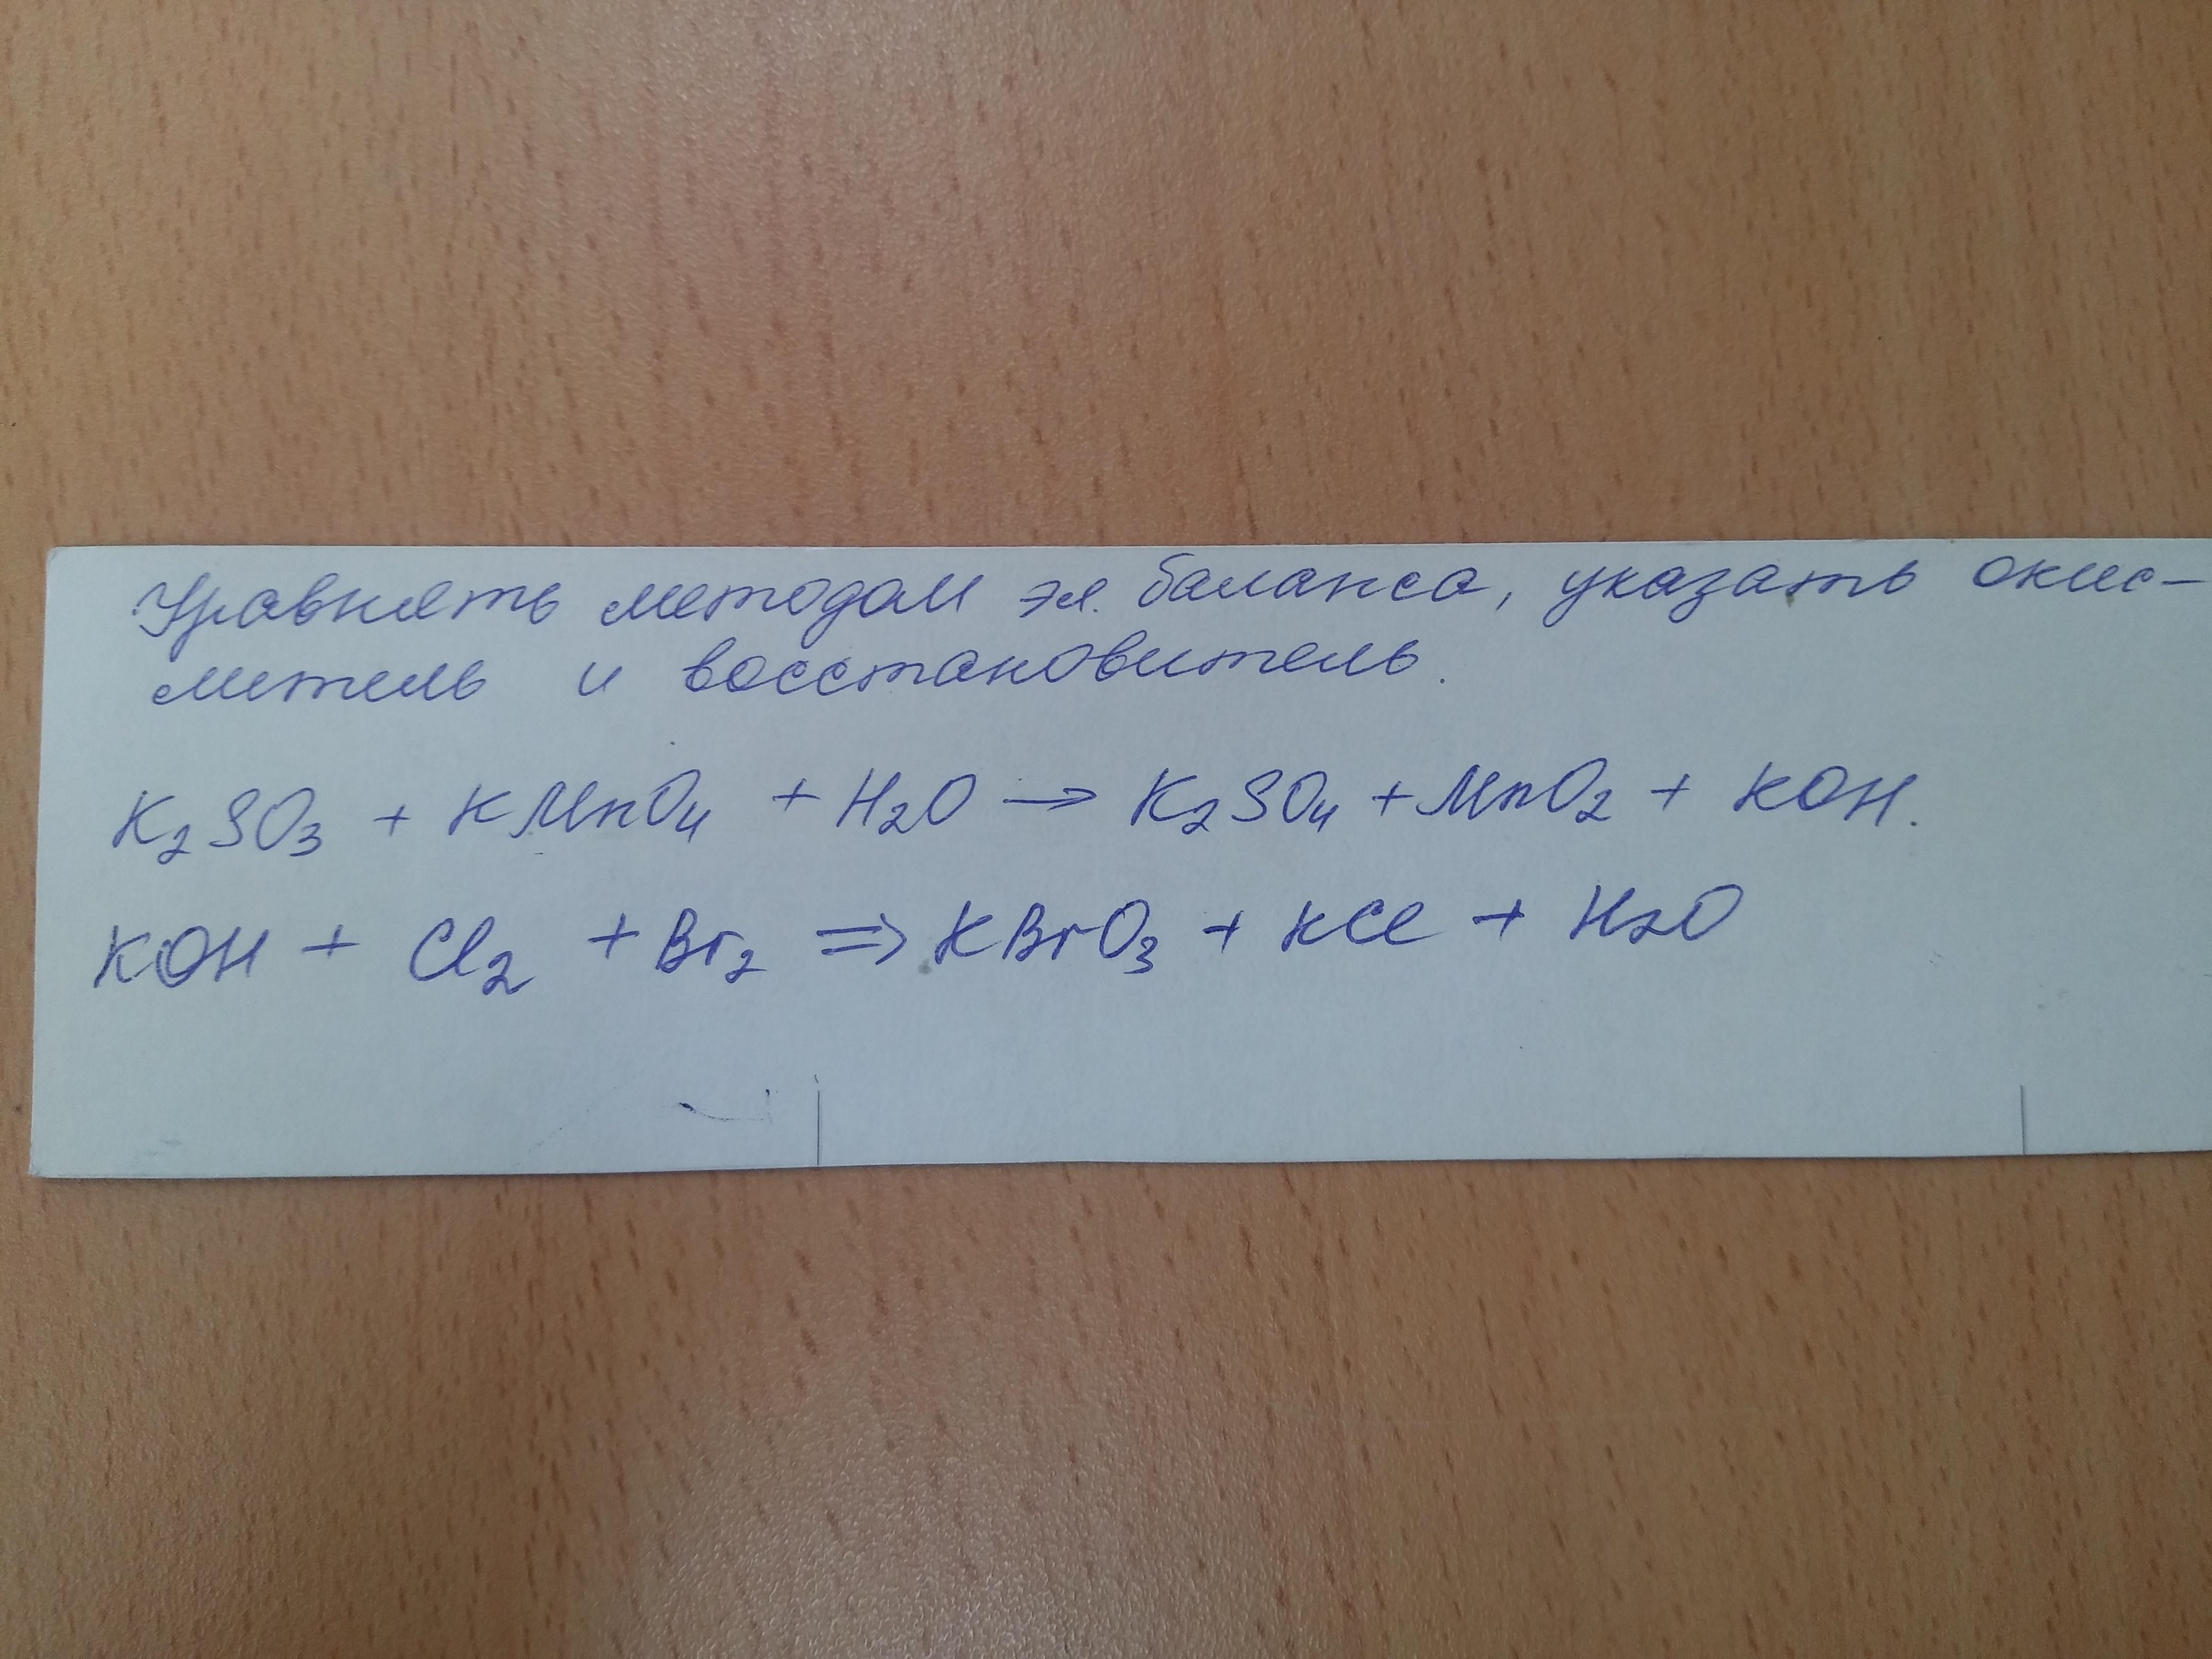 Уравнять методом эл. баланса, указать окис-
литель и восстановитель.
K₂SO₃ + KMnO₄ + H₂O → K₂SO₄ + MnO₂ + KOH.
KOH + Cl₂ + Br₂ ⇒ KBrO₃ + KCl + H₂O